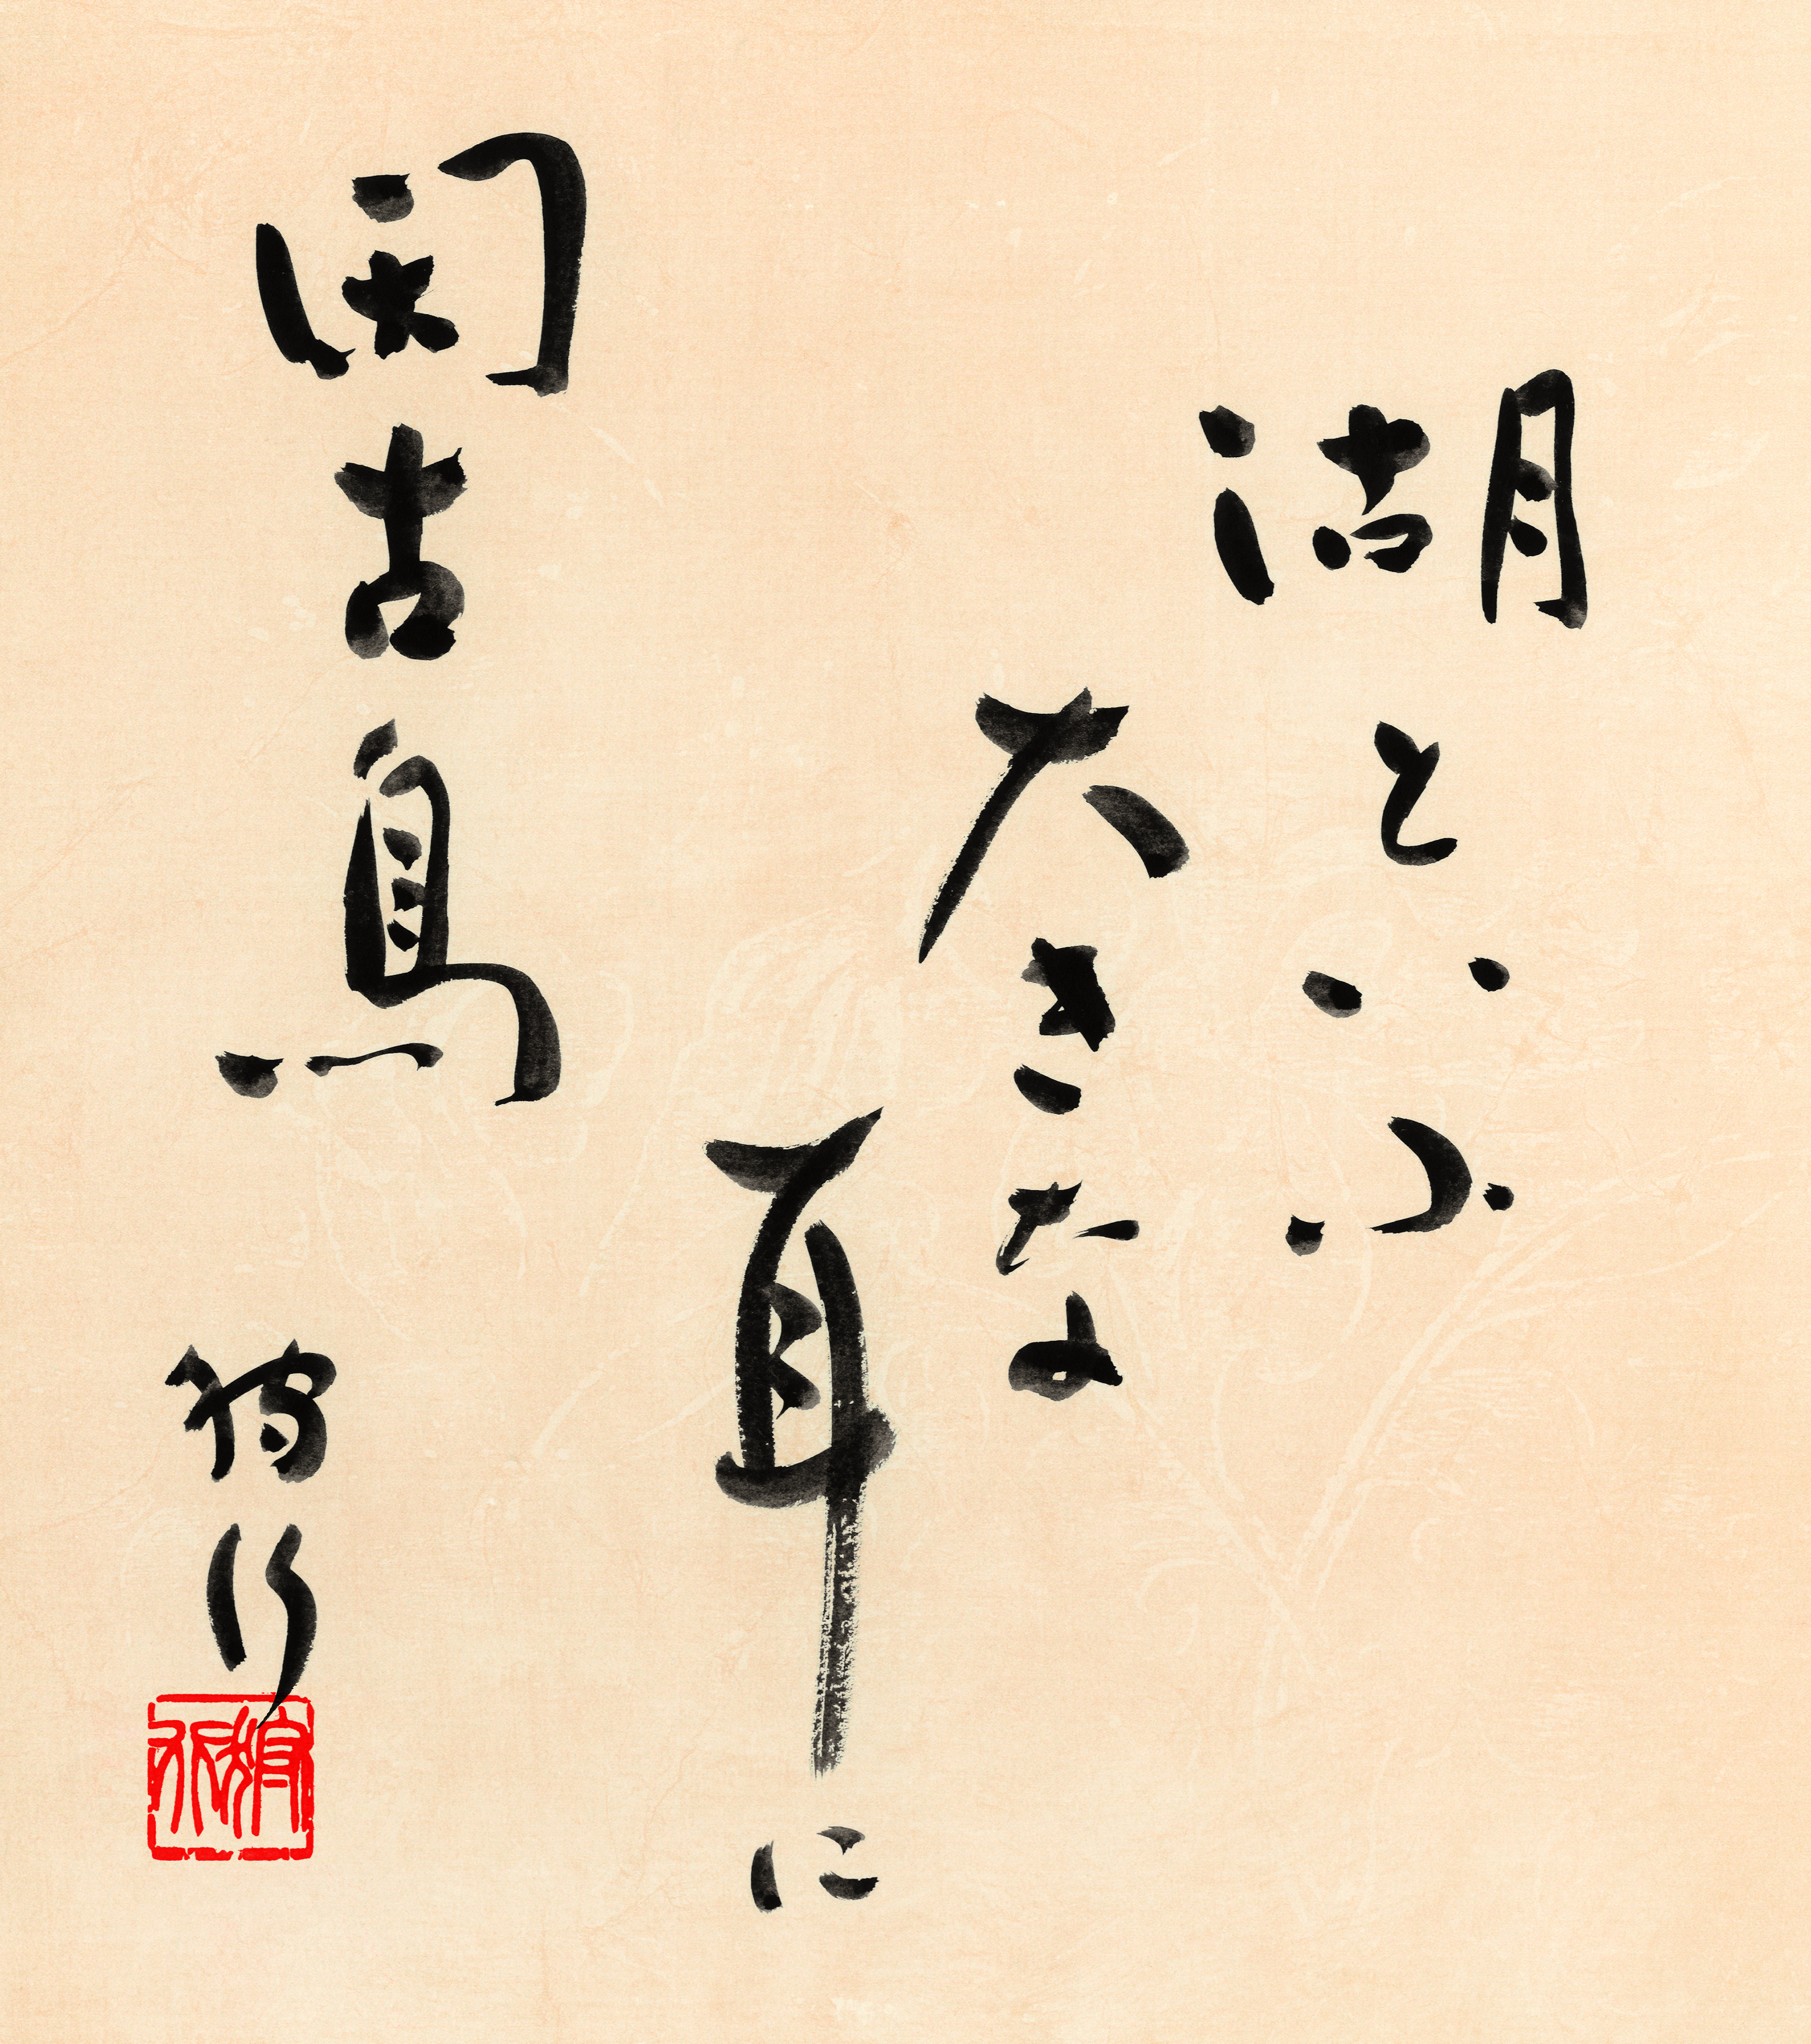 湖といふ
大きな
耳に
閑古鳥
狩行